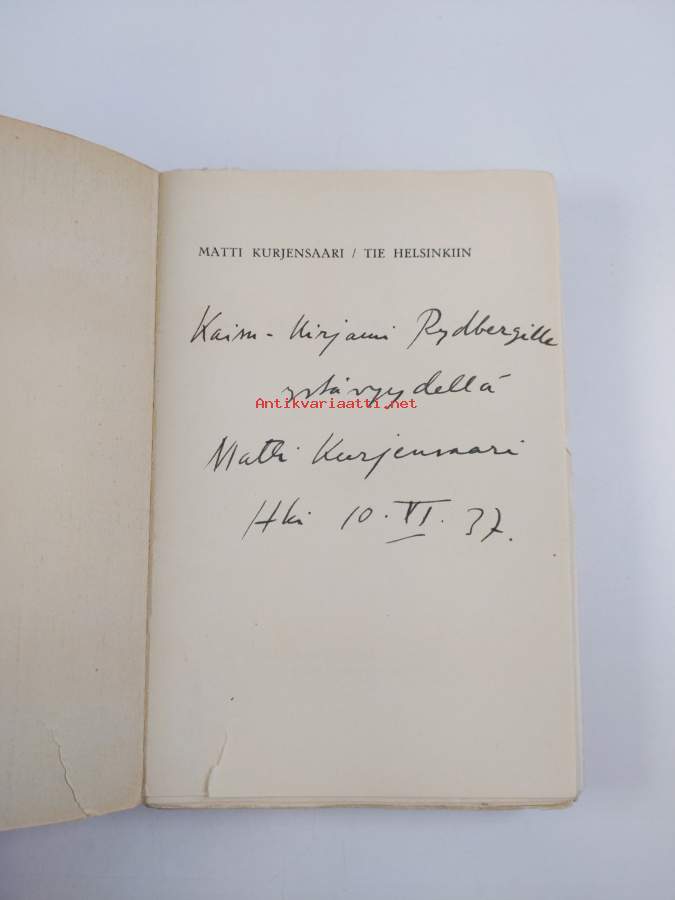 MATTI KURJENSAARI / TIE HELSINKIIN
Kaisu-Mirjami Rydbergille
ystävyydellä
Antikvariaatti.net
Matti Kurjensaari
Hki 10. VI. 37.